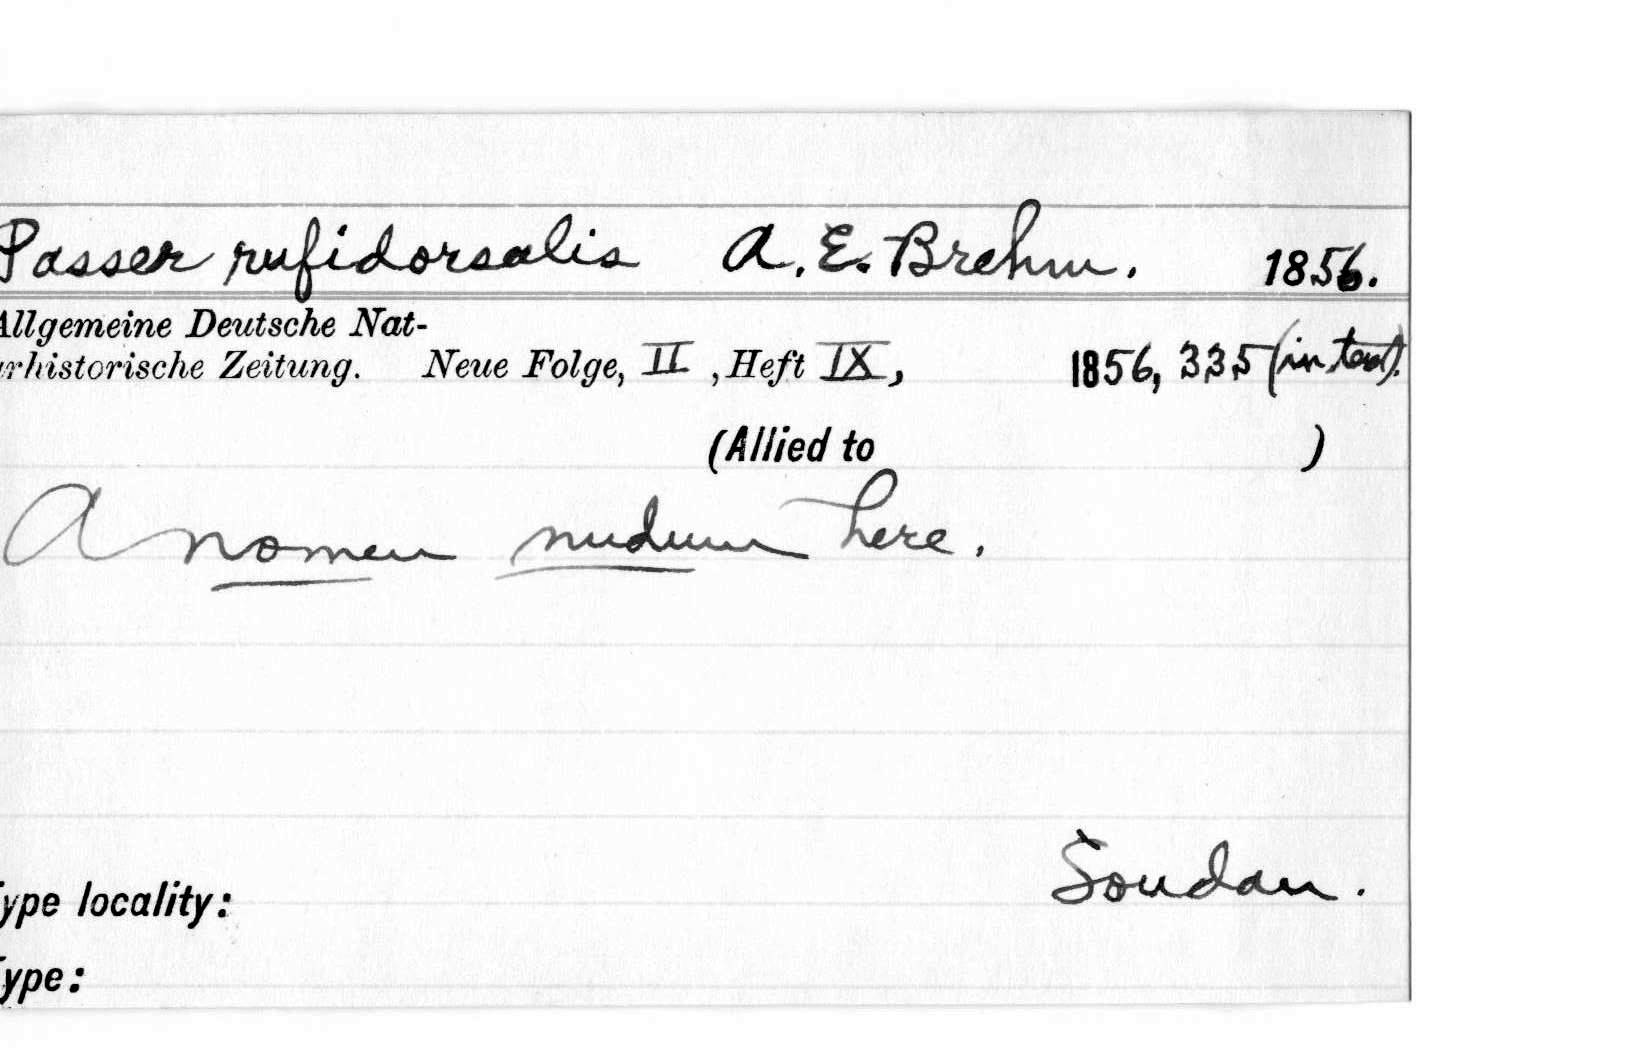 Passer rufidorsalis A. E. Brehm. 1856.
Allgemeine Deutsche Nat-
urhistorische Zeitung. Neue Folge, II , Heft IX, 1856, 335 (in text).
(Allied to )
A nomen nudum here.
Soudan.
Type locality:
Type: